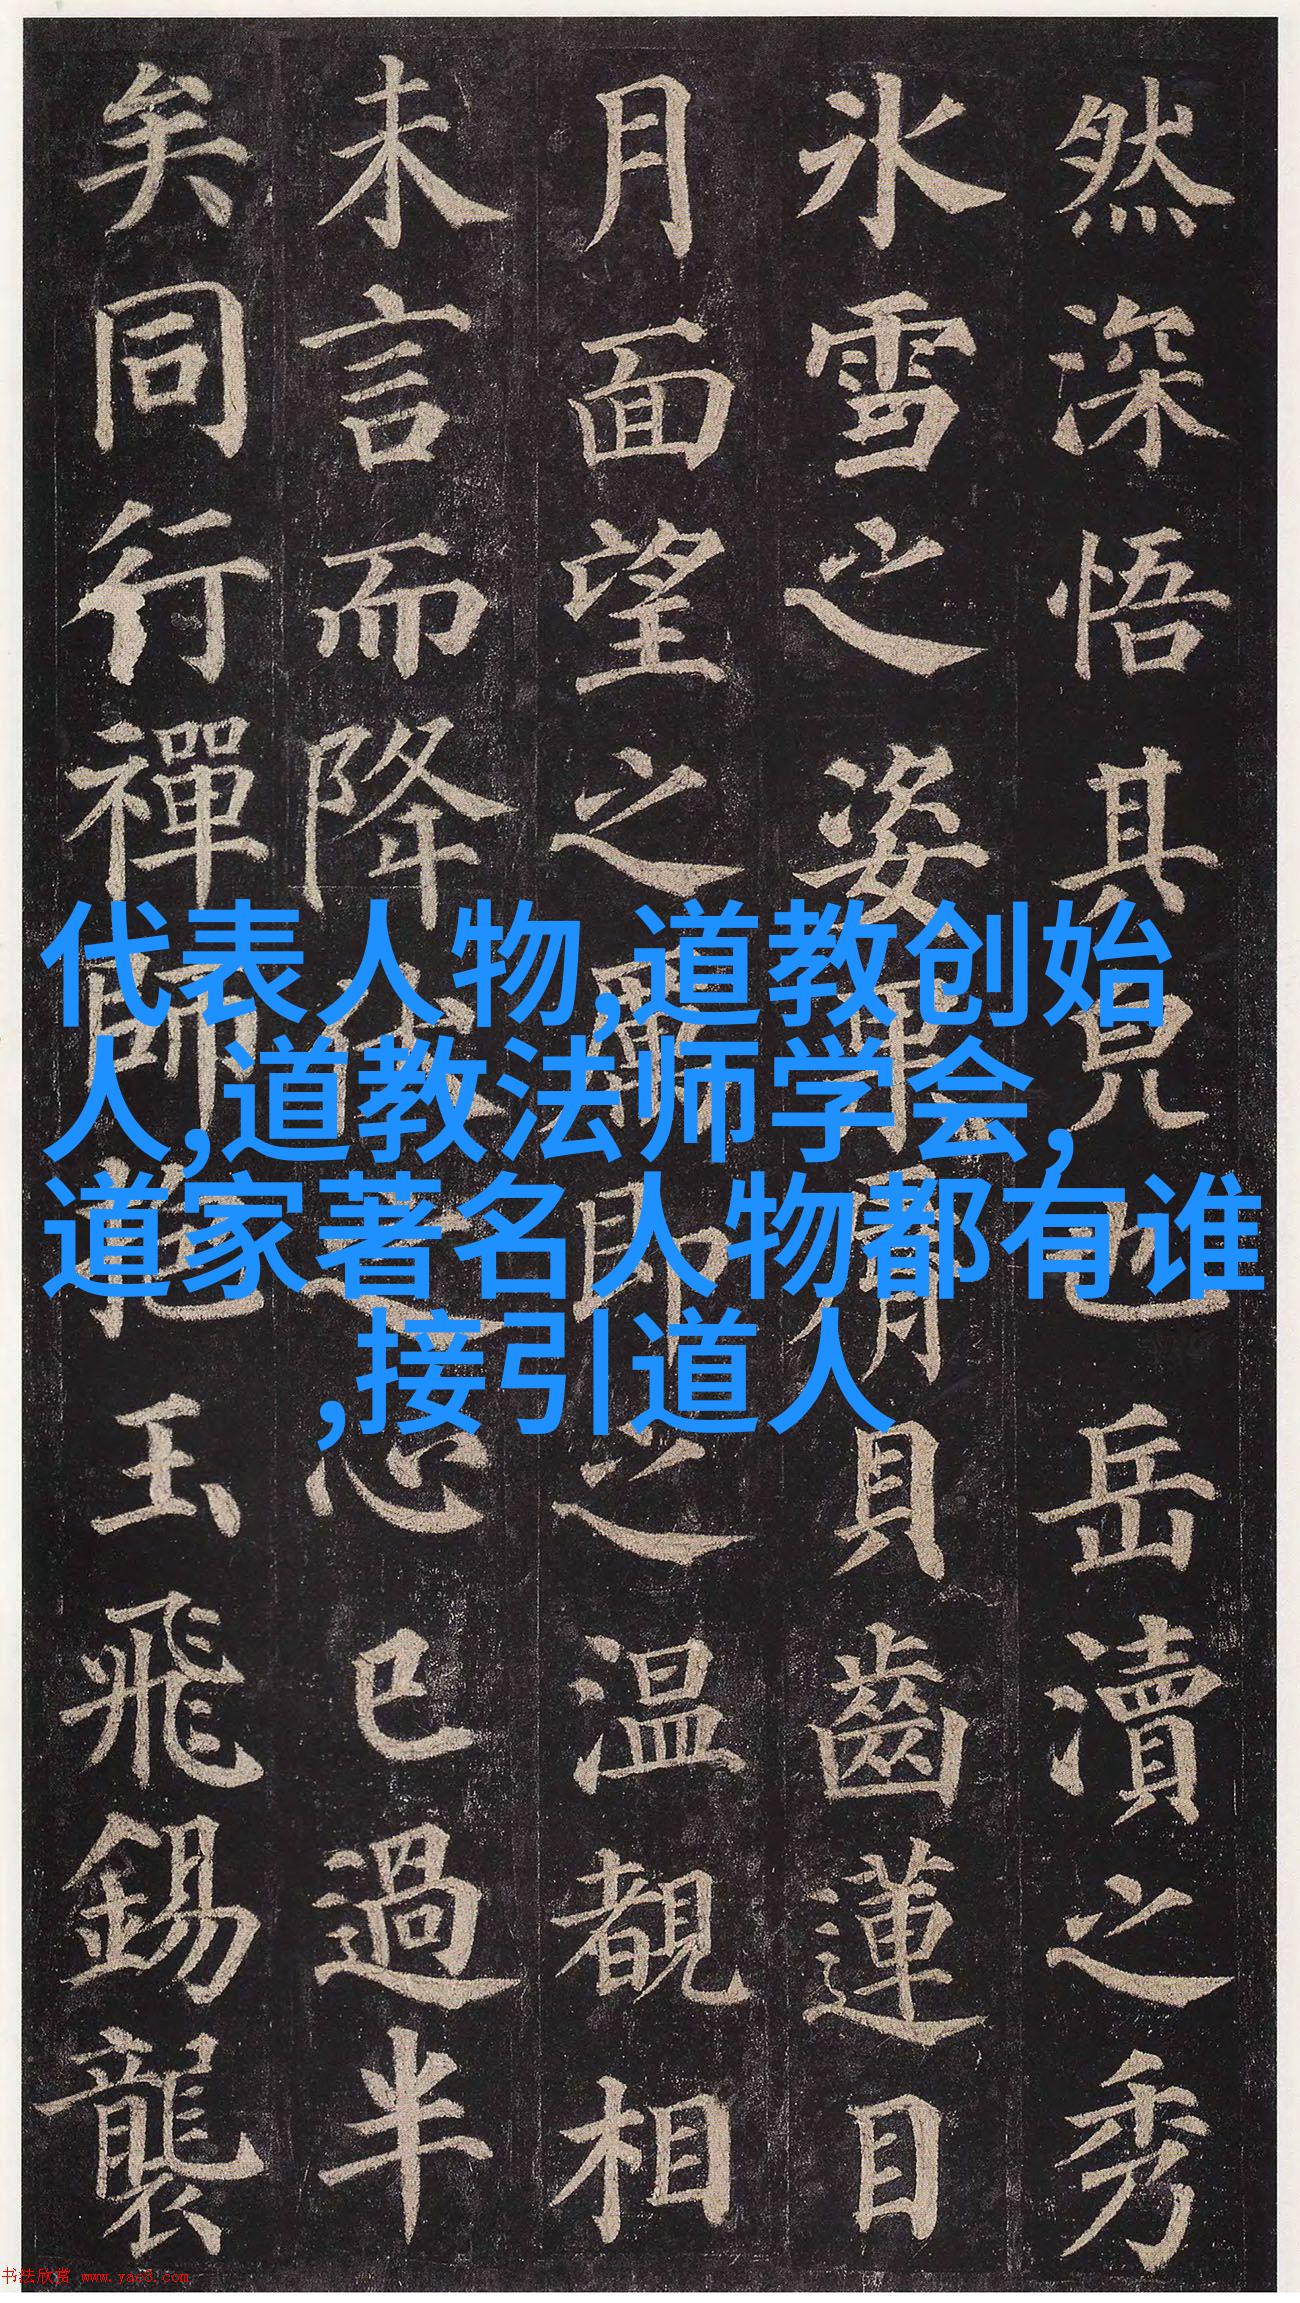 然深悟其見也岳瀆之秀
氷雪之姿果屑貝齒蓮目
月面望之儼即之温覩相
未言而降伏之心已過半
矣同行禪師抱玉飛錫襲
代表人物,道教创始
人,道教法师学会,
道家著名人物都有谁
,接引道人
书法欣赏 www.yac8.com